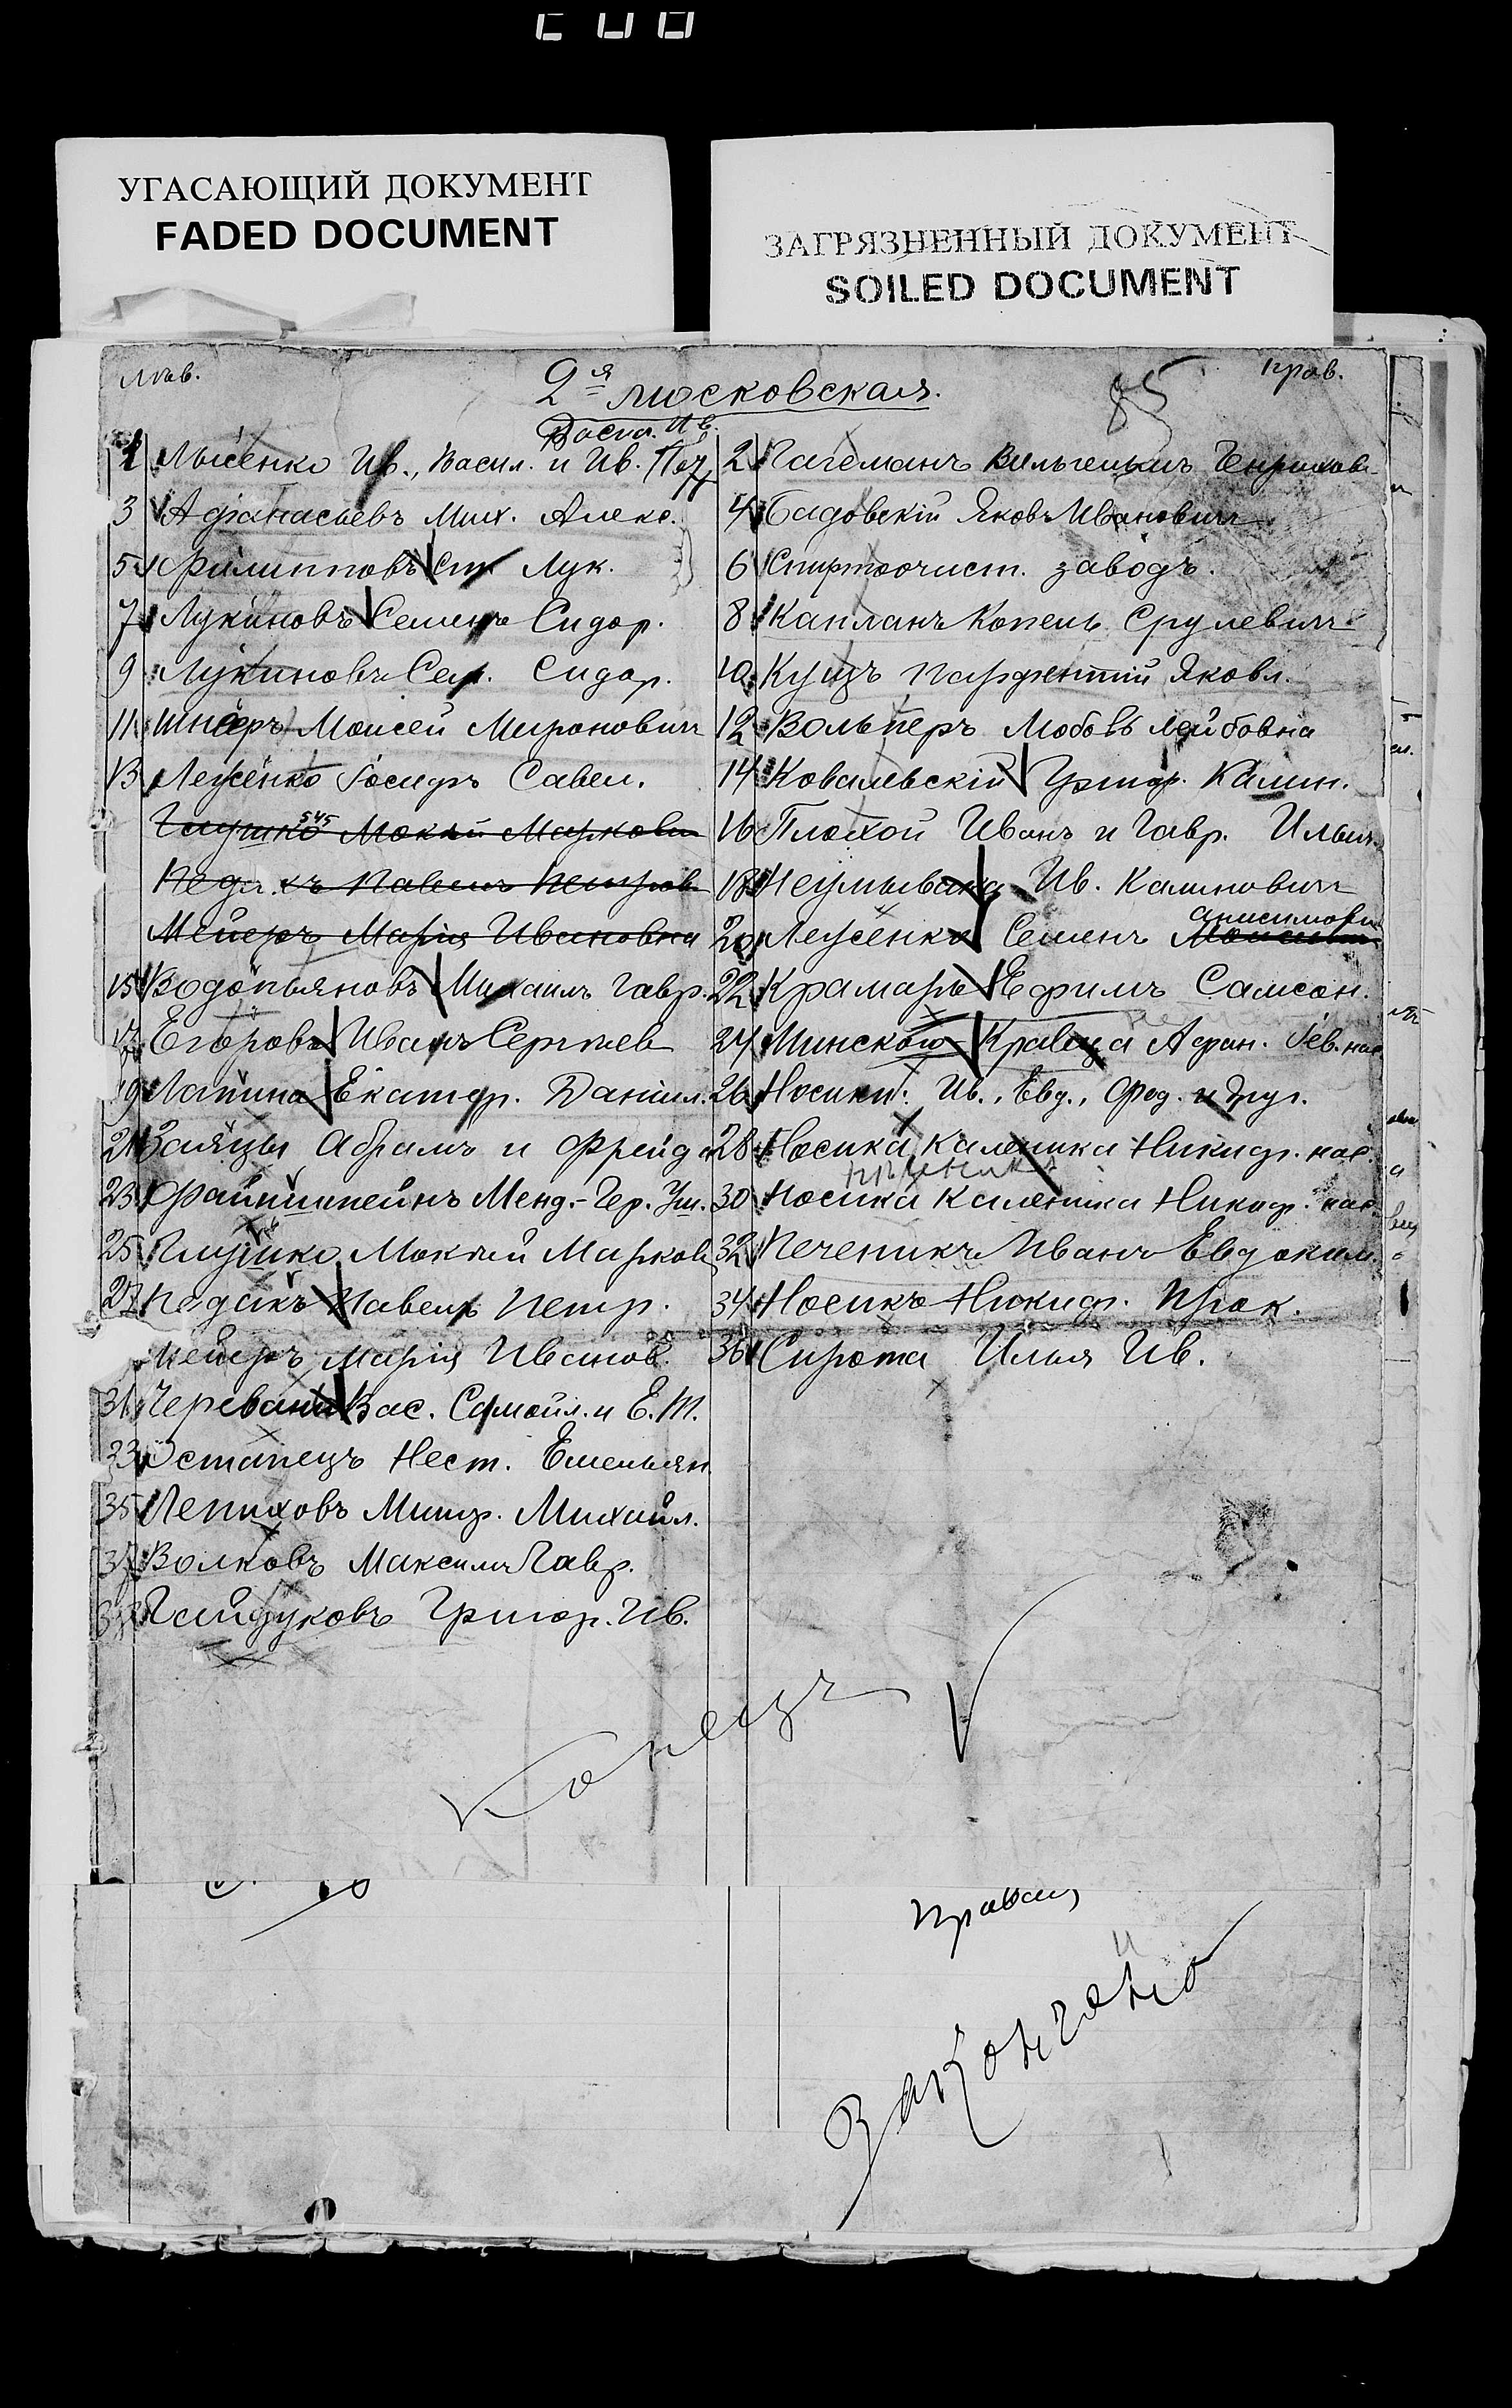 УГАСАЮЩИЙ ДОКУМЕНТ
FADED DOCUMENT
ЗАГРЯЗНЕННЫЙ ДОКУМЕНТ
SOILED DOCUMENT
лѣв.
2я московская.
85
прав.
Васил. Ив.
1 Лысенко Ив., Васил. и Ив.
3 Афанасьевъ Мих. Алекс.
5 Филипповъ Лук.
7 Лукиновъ Семенъ Сидор.
9 Лукиновъ Сем. Сидор.
11 Шнееръ Моисей Мироновичъ
13 Леженко Іосифъ Савел.
545
Глушко Мокѣй Маркови
Педа къ Павелъ Петров
Мейеръ Марія Ивановна
15 Водопьяновъ Михаилъ Гавр.
17 Егоровъ Иванъ Сергѣев
19 Лапина Екатер. Даніил.
21 Заяцы Абрамъ и Фрейда
23 Файнштейнъ Менд.-Гер. Уш.
25 Глушко Мокѣй Марков
27 Педакъ Павелъ Петр.
Мейеръ Марія Иванов.
31 Вас. Самойл. и Е. Т.
33 Остапецъ Нест. Емельян
35 Лепиховъ Митр. Михайл.
37 Волковъ Максимъ Гавр.
Гайдуковъ Григор. Ив.
2 Гагеманъ Вильгельмъ Генрихов
4 Садовскій Яковъ Ивановичъ
6 Спиртоочист. заводъ.
8 Капланъ Копель Срулевичъ
10 Куцъ Парфентій Яковл.
12 Вольперъ Любовь Лейбовна
14 Ковалевскій Григор. Калин.
16 Плохой Иванъ и Гавр. Ильич.
18 Неумывака Ив. Калиновичъ
20 Леженко Семенъ
22 Крамарь Ефимъ Самсон.
24 Минской Кравца Афан. нас
26 Носики: Ив., Евд., Фед. и друг.
28 Носика Каленика Никиф. нас.
30 Носика Каленика Никиф. нас.
32 Печеникъ Иванъ Евдоким.
34 Носикъ Никиф. Прок.
36 Сирота Илья Ив.
Конецъ
Правая
Закончано